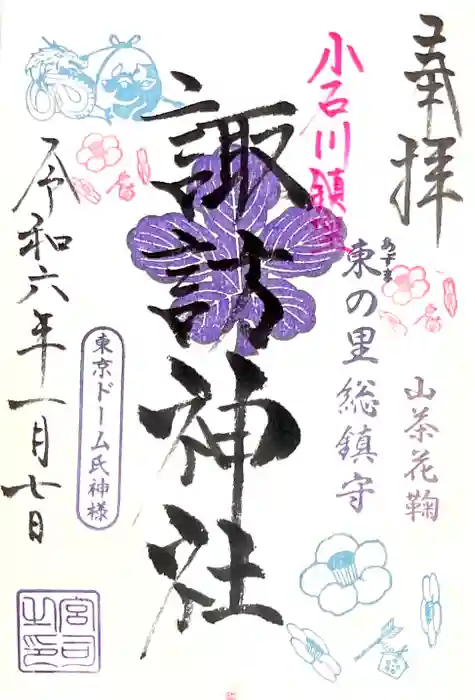 奉拝
小石川鎮座
東の里総鎮守
あずま
山茶花鞠
諏訪神社
令和六年一月七日
東京ドーム氏神様
宮司之印